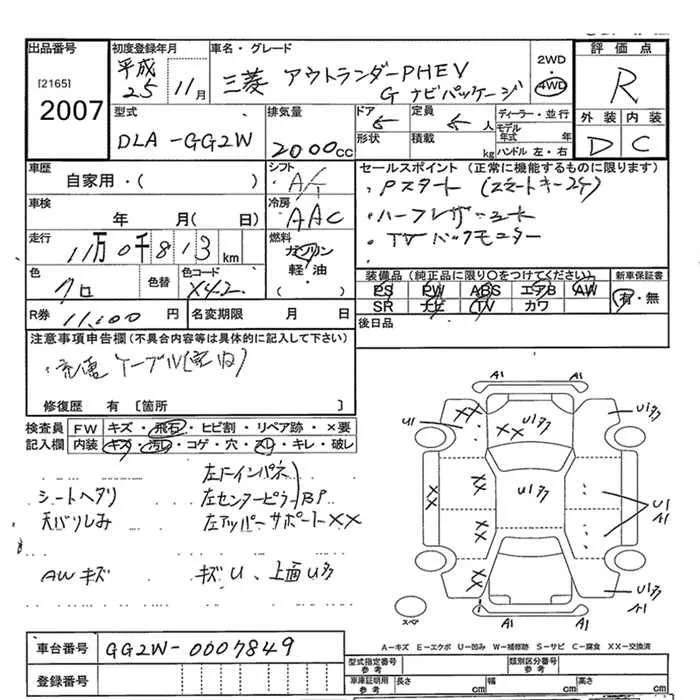 出品番号
[2165]
2007
初度登録年月
平成
25 11月
車名・グレード
三菱 アウトランダーPHEV
G ナビパッケージ
2WD
4WD
評価点
R
外装 内装
D C
型式
DLA-GG2W
排気量
2000cc
ドア
定員
人
形状
積載
kg
ディーラー・並行
モデル年式 年
ハンドル 左・右
車歴
自家用・( )
シフト
AT
車検
年 月( 日)
冷房
AAC
走行
11万0千813km
燃料
ガソリン
軽・油
( )
色
クロ
色替
色コード
X42
R券
11,100円
名変期限 月 日
セールスポイント(正常に機能するものに限ります)
・Pスタート(スマートキー2ケ)
・ハーフレザーシート
・TVバックモニター
装備品(純正品に限り〇をつけてください)
PS PW ABS エアB AW
SR ナビ TV カワ
新車保証書
有・無
後日品
注意事項申告欄(不具合内容等は具体的に記入して下さい)
・充電ケーブル(室内)
修復歴 有 [箇所 ]
検査員
記入欄
FW キズ・飛石・ヒビ割・リペア跡・×要
内装 キズ・汚レ・コゲ・穴・スレ・キレ・破レ
シートヘタリ
天バリしみ
AWキズ
左にインパネ
左センターピラーBP
左アッパーサポートXX
キズU、上面Uタ
A1 A1
U1 XX XX U1タ U1タ
XX XX U1タ U1
XX XX A1
XX U1タ
A1 A1
スペア
A-キズ E-エクボ U-凹み W-補修跡 S-サビ C-腐食 XX-交換済
車台番号
GG2W-0007849
登録番号
型式指定番号
参考
類別区分番号
参考
車庫証明用
参考
長さ cm 幅 cm 高さ cm